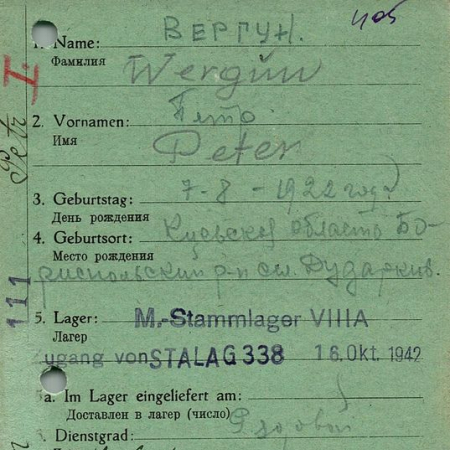 1. Name: ВЕРГУН.
Фамилия Wergun
2. Vornamen: Петро
Имя Peter
3. Geburtstag: 7-8-1922 года
День рождения
4. Geburtsort: Киевская область Бо-
Место рождения
риспольский р-н сел. Дударкив.
5. Lager: M.-Stammlager VIIIA
Лагер
Zugang von STALAG 338 16. Okt. 1942
5a. Im Lager eingeliefert am:
Доставлен в лагер (число)
6. Dienstgrad: Рядовой
Petr
111